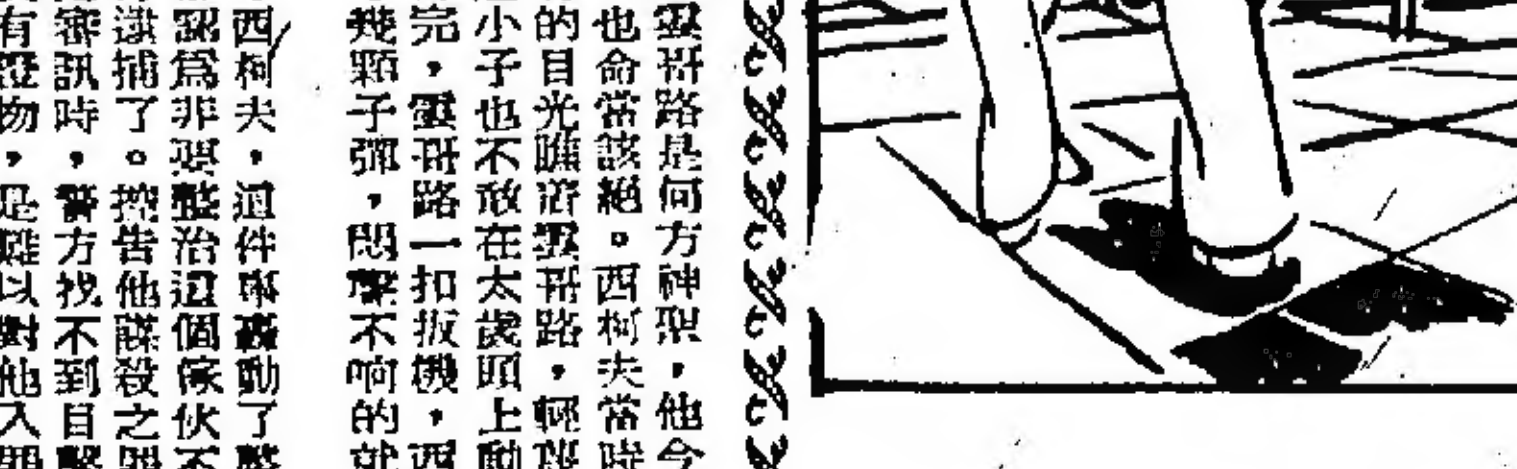 雲哥路是何方神聖，他今
也命當該絕。西柯夫當時
的目光瞧着雲哥路，輕蔑
小子也不敢在太歲頭上動
完，雲哥路一扣扳機，西
幾顆子彈，悶聲不响的就
西柯夫，這件事轟動了整
認爲非要整治這個傢伙不
逮捕了。控告他謀殺之罪
審訊時，警方找不到目擊
有證物，是難以對他入罪